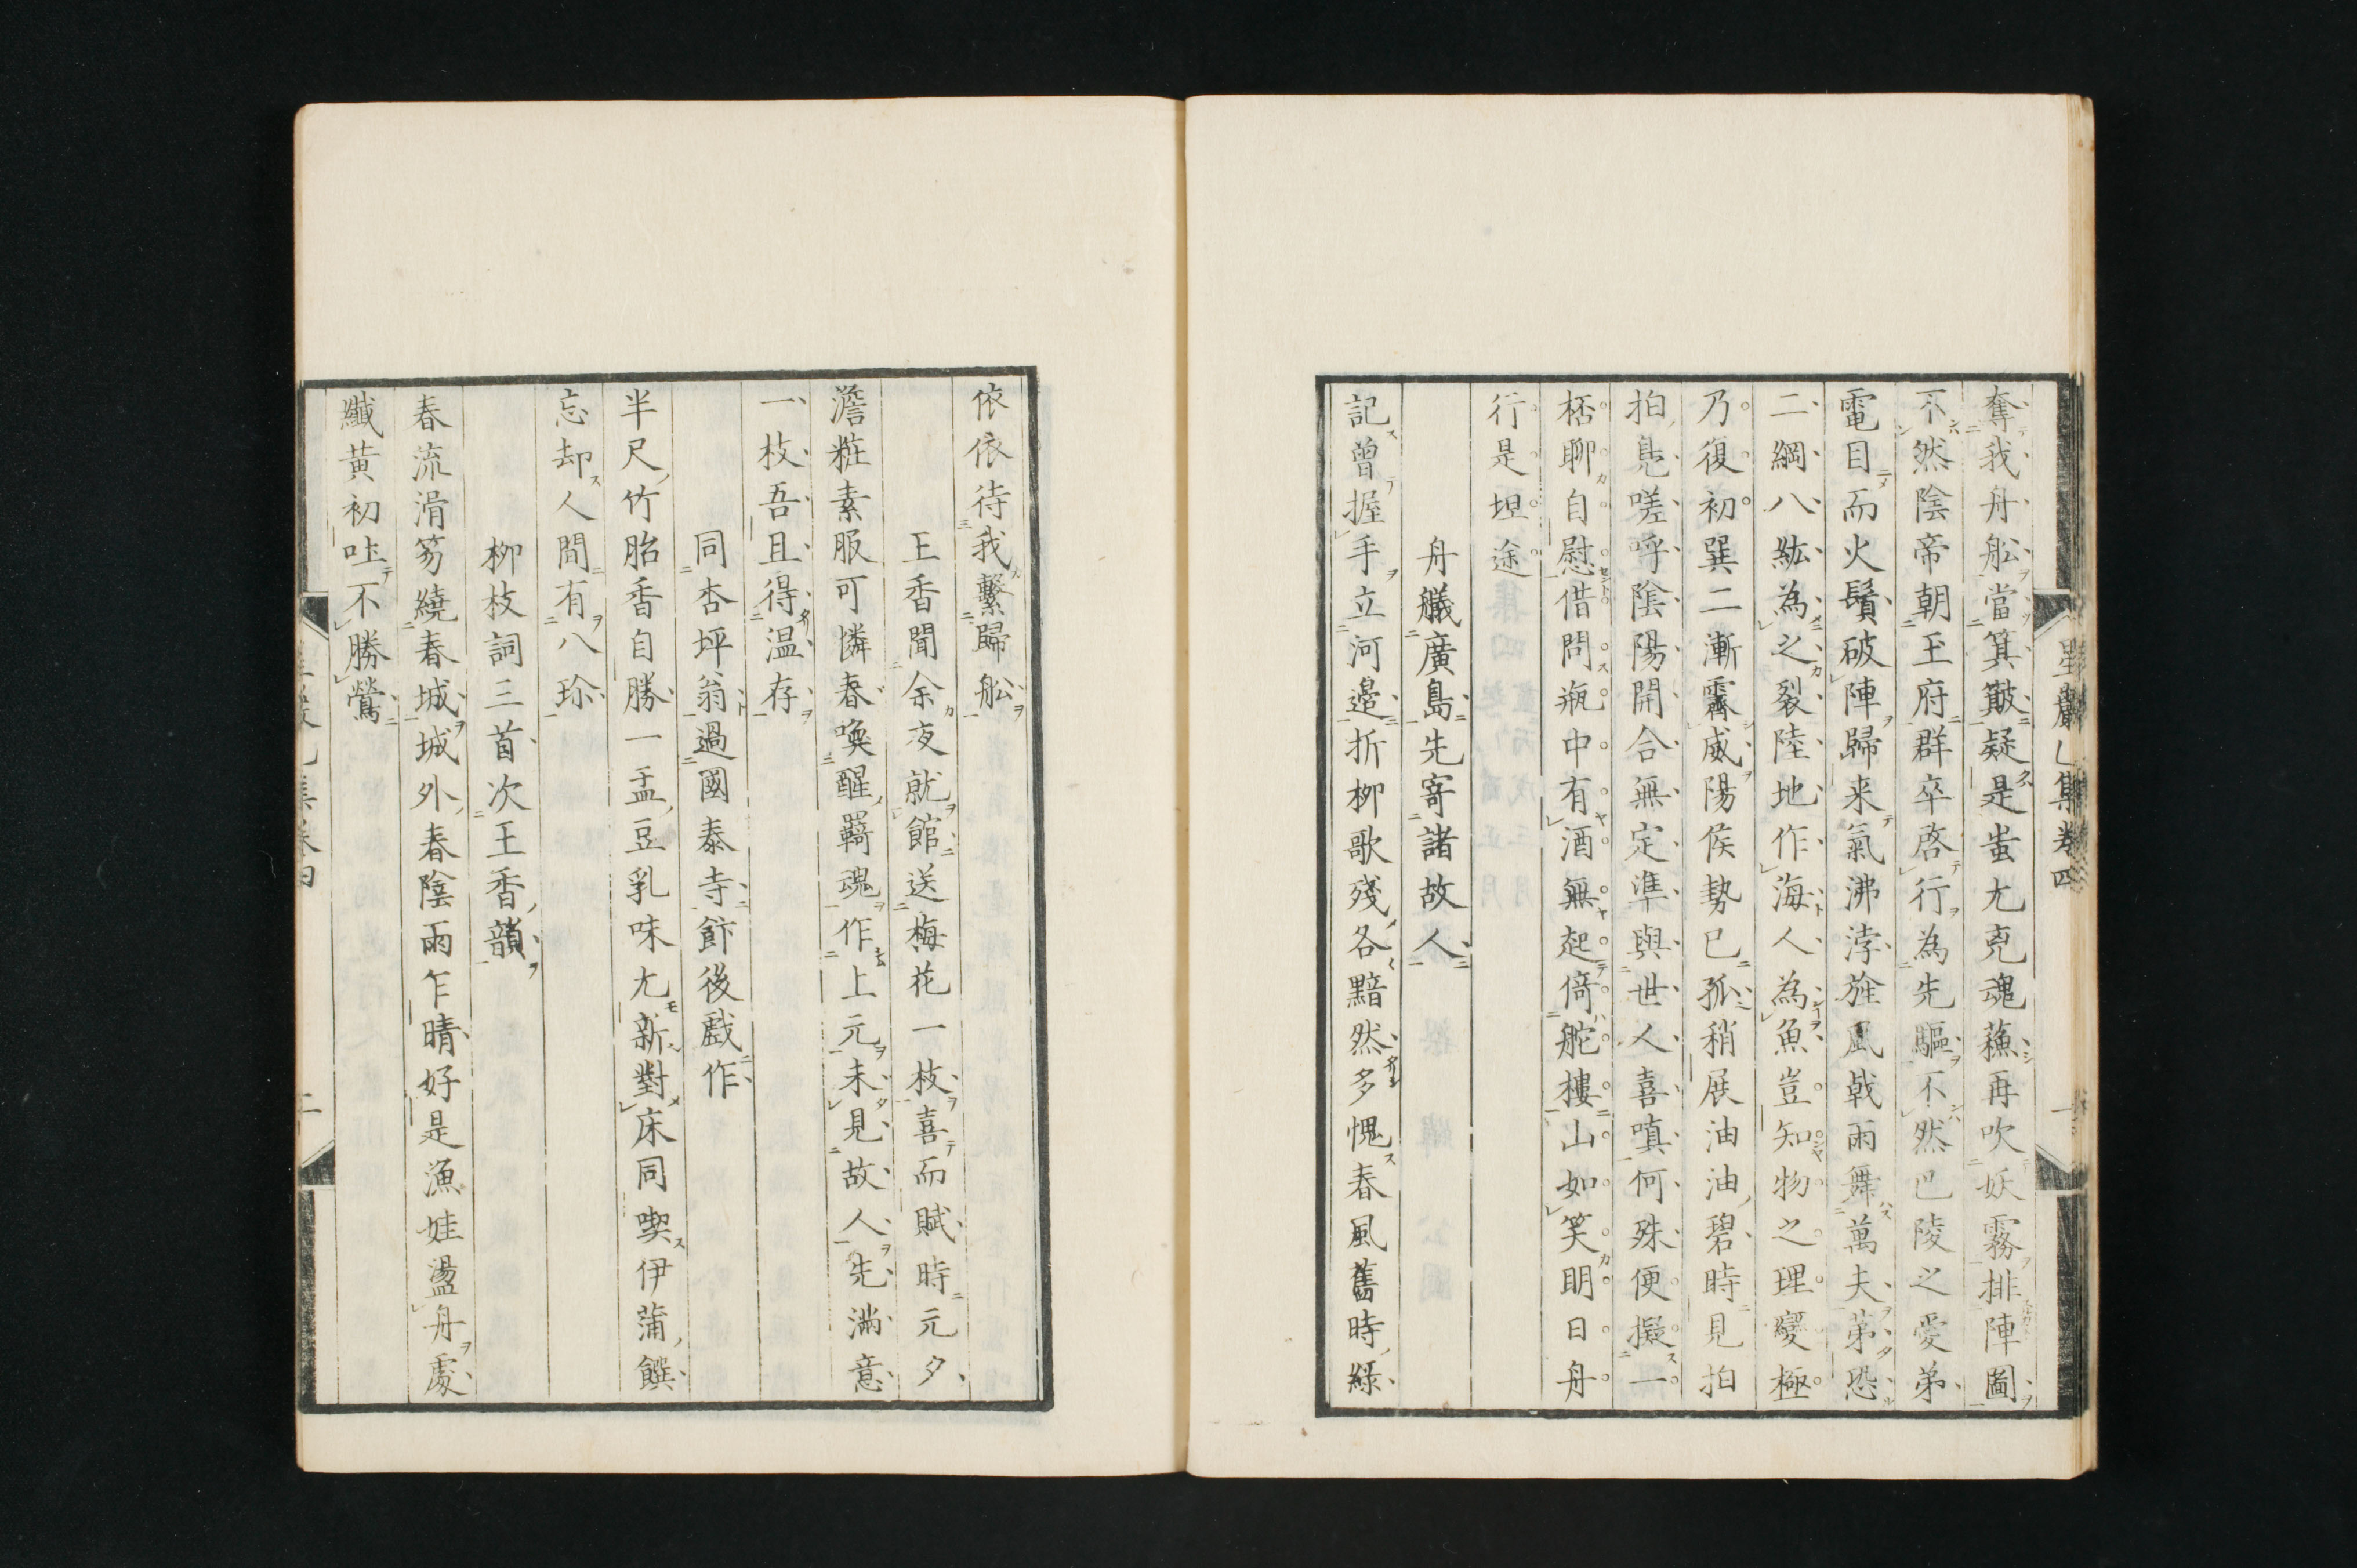 奪我舟舩當箕簸疑是蚩尤尭魂蘓再吹妖霧排陣圖
不然陰帝朝王府群卒啓行為先驅不然巴陵之愛弟
電目而火鬚破陣歸来氣沸浡旌風戟雨舞萬夫苐恐
二綱八紘為之裂陸地作海人為魚豈知物之理變極
乃復初巽二漸霽威陽侯勢已孤稍展油油碧時見拍
拍鳧嗟呼陰陽開合無定準與世人喜嗔何殊便擬一
桮聊自慰借問瓶中有酒無起倚舵樓山如笑明日舟
行是坦途
舟艤廣島先寄諸故人
記曾握手立河邉折柳歌殘各黯然多愧春風舊時綠
星巖乙集卷四
一
依依待我繫歸舩
王香聞余夜就館送梅花一枝喜而賦時元夕
澹粧素服可憐春喚醒羇魂作上元未見故人先滿意
一枝吾且得温存
同杏坪翁過國泰寺飰後戲作
半尺竹胎香自勝一盂豆乳味尤新對床同喫伊蒲饌
忘却人間有八珍
柳枝詞三首次王香韻
春流滑笏繞春城城外春陰雨乍晴好是漁娃盪舟處
纖黄初吐不勝鶯
二